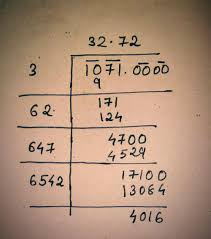 32.72
3 1071.0000
9
62 171
124
647 4700
4529
6542 17100
13084
4016